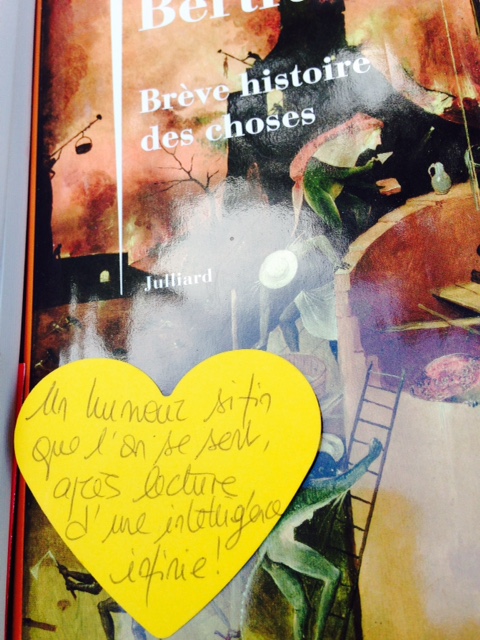 Bertr
Brève histoire
des choses
Julliard
Un humour si fin
que l'on se sent,
après lecture
d'une intelligence
infinie !